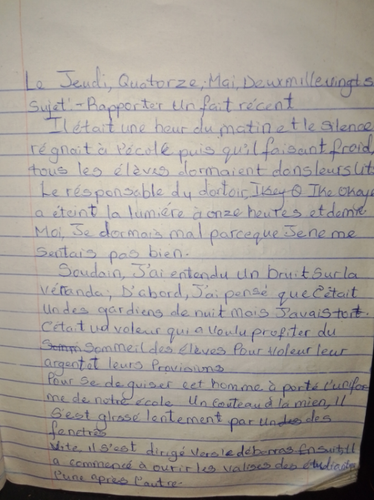 Le Jeudi, Quatorze, Mai, Deuxmillevingt s
Sujet:- Rapporter un fait récent
Il était une heur du matin et le silence
régnait à l'école puis qu'il faisant froid,
tous les élèves dormaient dans leurs lits
Le résponsable du dortoir, Ikey O Ike
a étaint la lumière à onze heures et demie
Moi, Je dormais mal parceque Je ne me
sentais pas bien.
Soudain, J'ai entendu un bruit sur la
véranda; D'abord, J'ai pensé que C'était
un des gardiens de nuit mais J'avais tort.
C'était un voleur qui a voulu profiter du
sommeil des élèves pour voleur leur
argent et leurs Provisions
Pour se deguiser cet homme à porté l'unifor
me de notre école Un couteau à la mien, Il
s'est glissé lentement par un des
fenetres
Vite il s'est dirigé vers le débarras Ensuit Il
a commencé à ourir les valises des étudiants
l'une après l'autre.